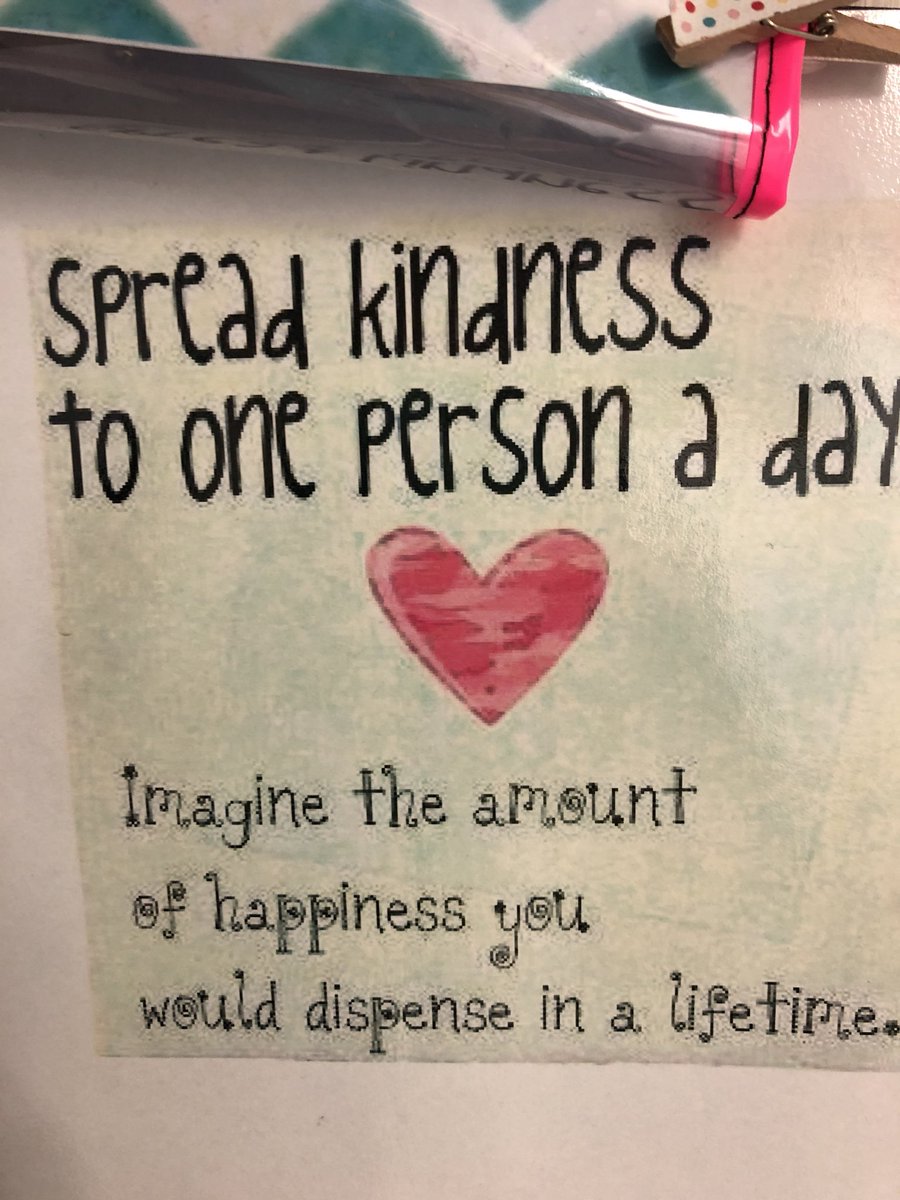 spread kindness
to one person a day
Imagine the amount
of happiness you
would dispense in a lifetime.